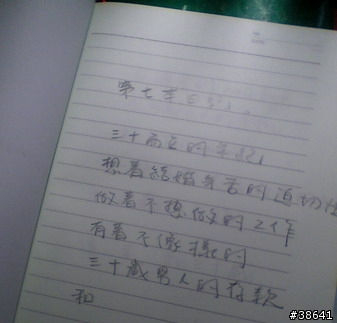 第七年
三十而立的年紀
想著結婚生子的迫切性
做著不想做的工作
有著不像樣的
三十歲男人的存款
和
#38641